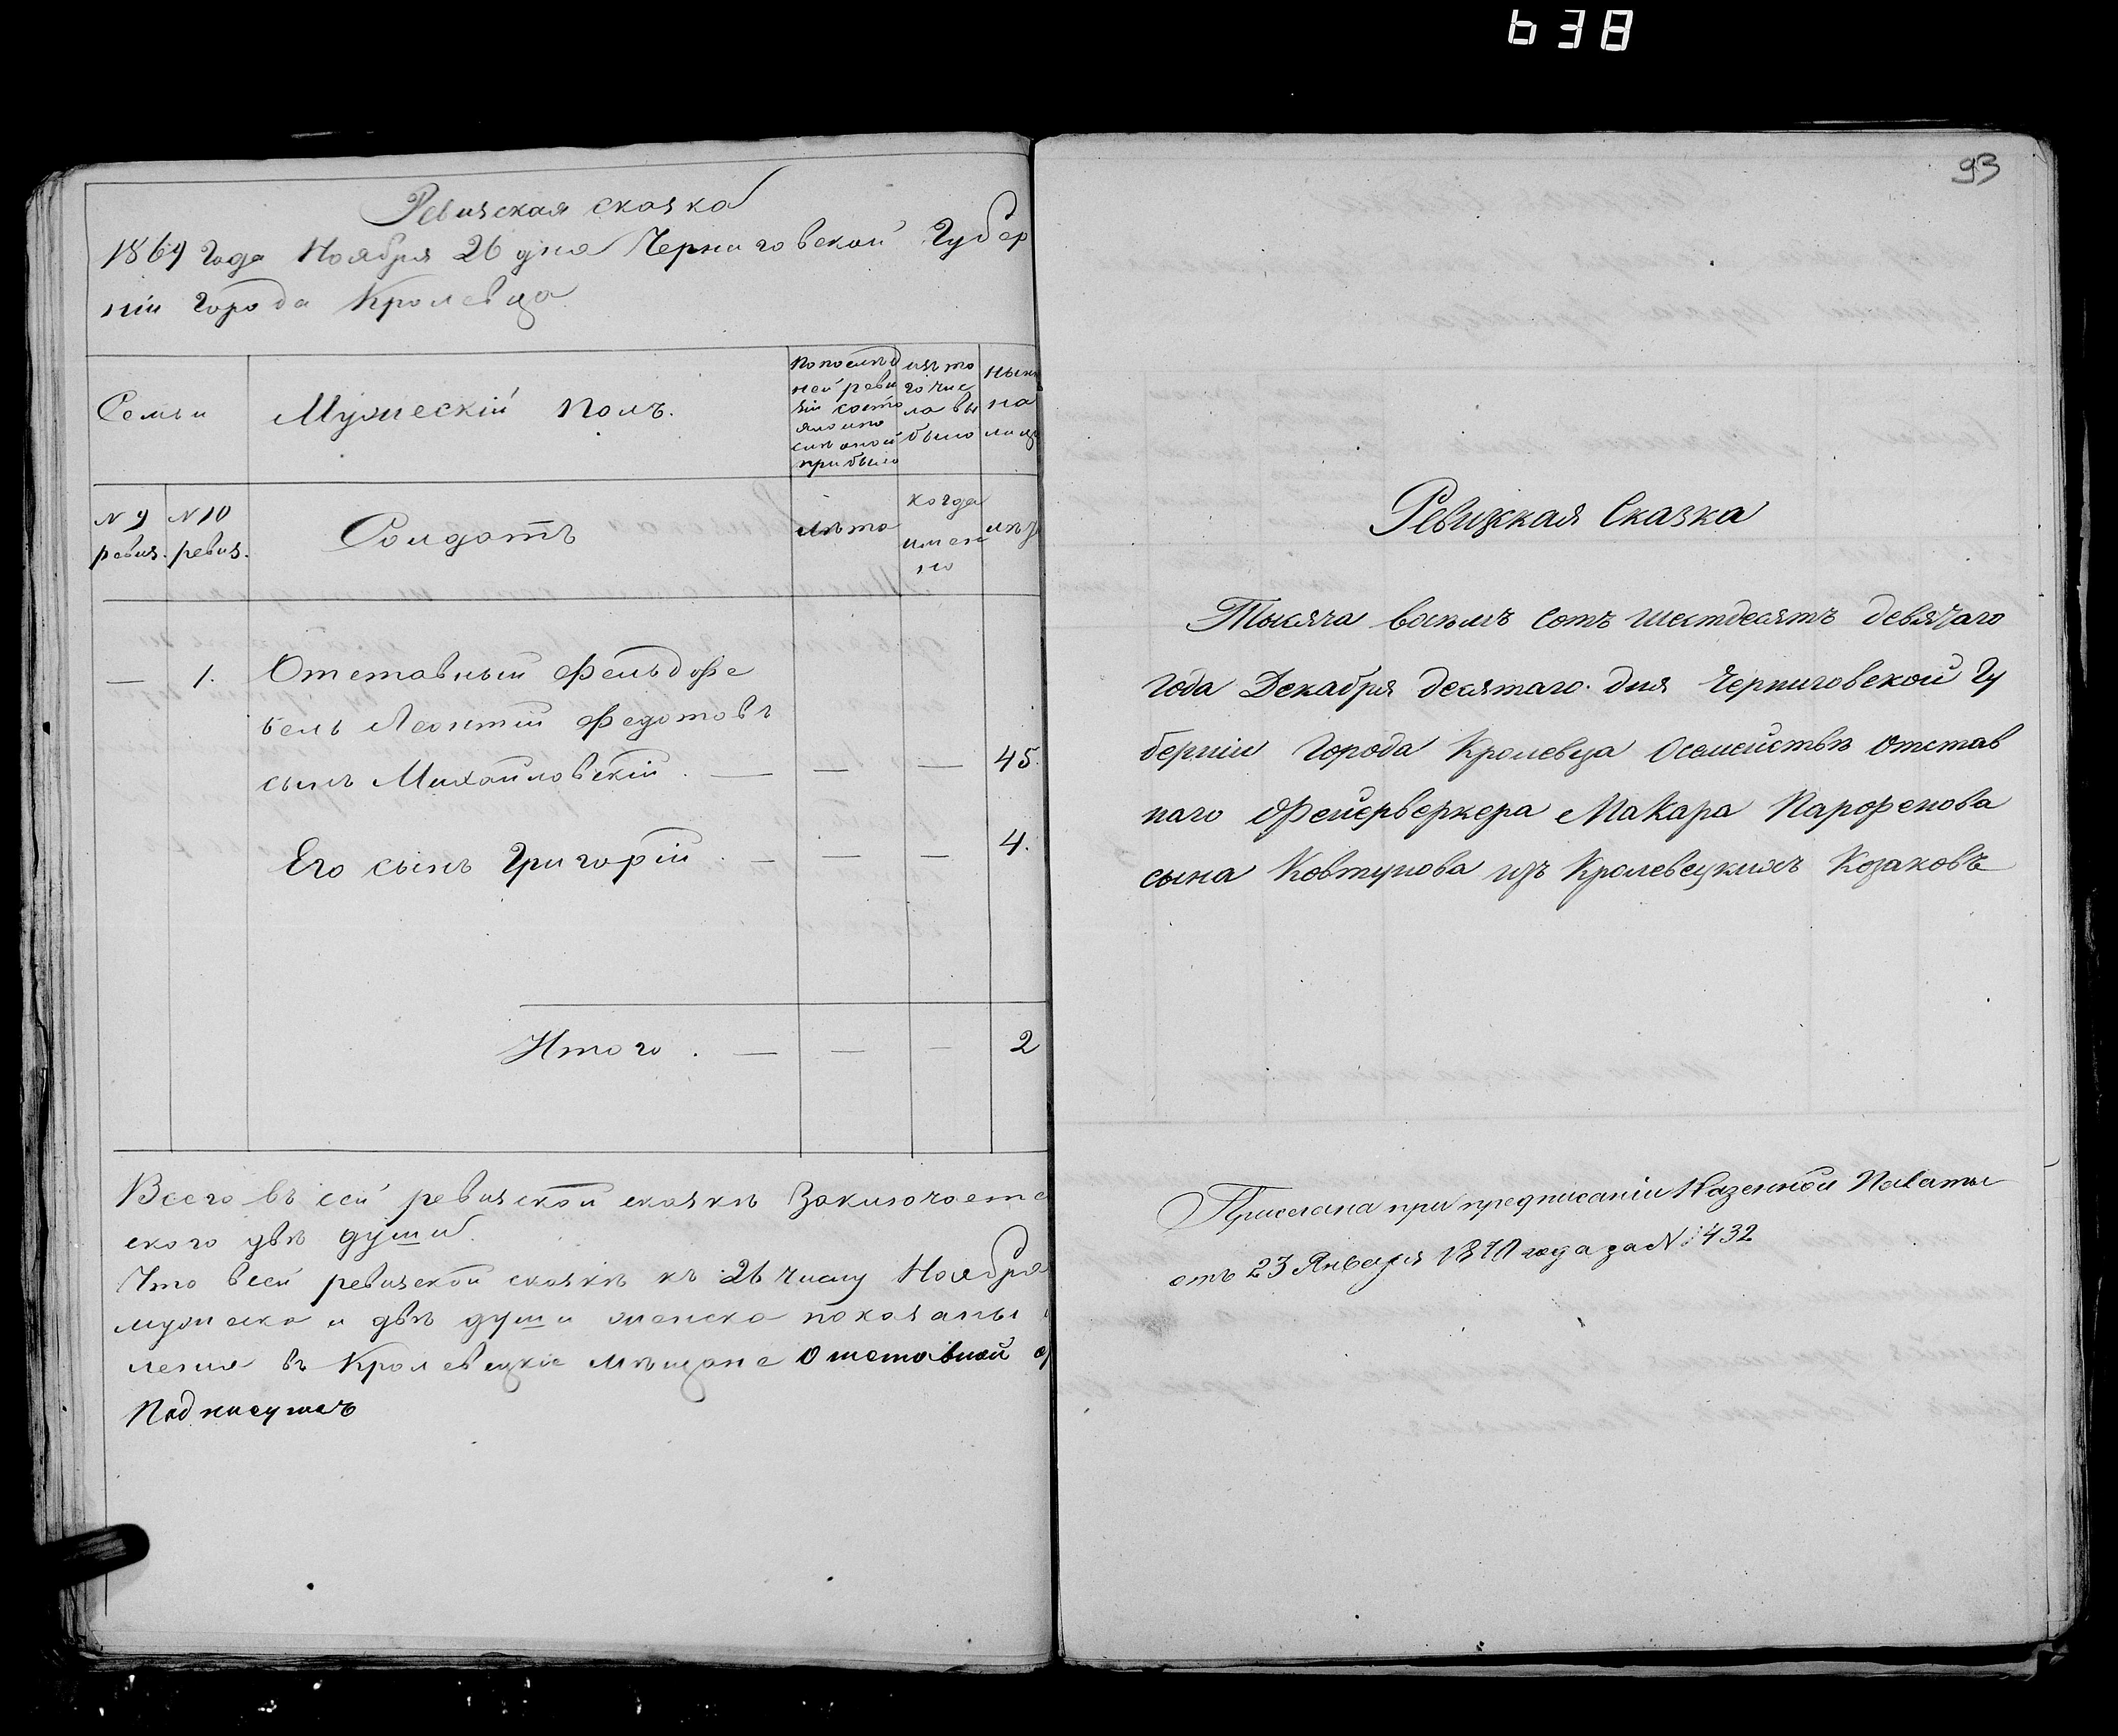 638
Ревизская сказка
1869 года Ноября 26 дня Черниговской Губер
ніи города Кролевца
Семьи
Мужескій полъ.
По послѣд
ней реви
зіи состо
яло и по
слѣ оной
прибыло
изъ то
го чис
ла вы
было
нын
на
лиц
N 9
ревиз.
N 10
ревиз.
Солдатъ
лѣта
когда
имен
но
лѣт
— 1. Отставный Фельдфе
бель Леонтій Федотовъ
сынъ Михайловскій . — — — 45.
Его сынъ Григорій . — — — 4.
Итого . — — — 2
Всего въ сей ревизской сказкѣ заключаетс
ского двѣ души
Что всей ревизской сказкѣ къ 26 числу Ноября
мужеска и двѣ души женска показаны
ления въ Кролевецкіе мѣщане Отставной
Подписуюсь
93
Ревизская Сказка
Тысяча восемъ сотъ шестдесятъ девятаго
года Декабря десятаго дня Черниговской Гу
берніи Города Кролевца О семействѣ отстав
наго Фейерверкера Макара Парфенова
сына Ковтунова изъ Кролевецкихъ Козаковъ
Прислана при предписаніи Казенной Палаты
отъ 23 Января 1870 года за N: 432